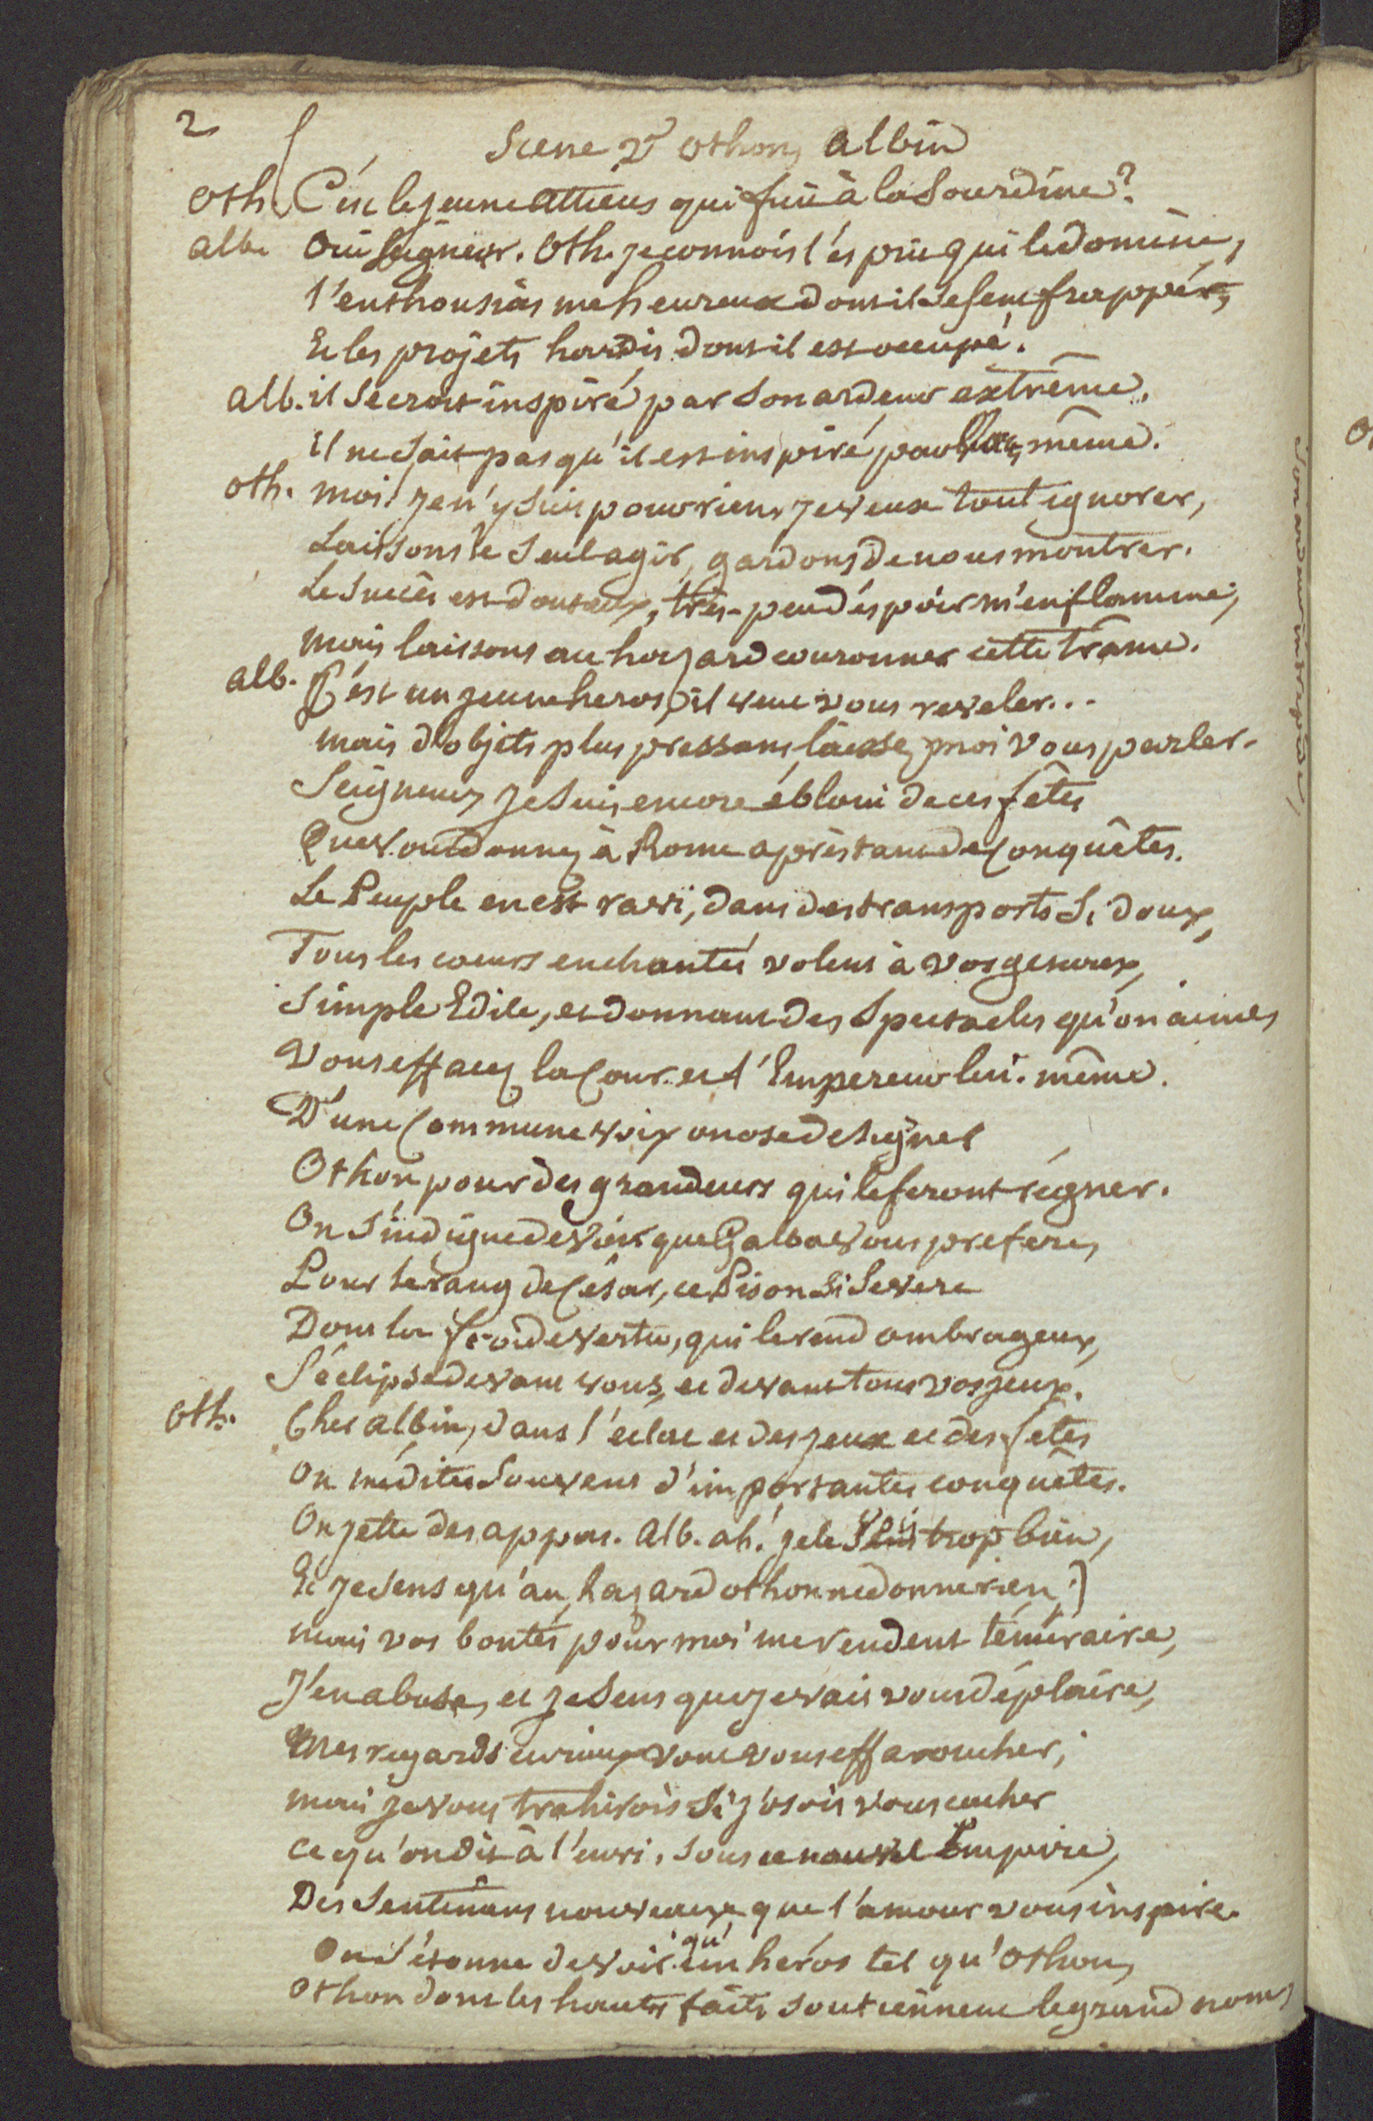 2
Scene 2e Othon, Albin
Oth. C'est le jeune Atticus qui fuit à la Sourdine?
alb. Oui Seigneur. Oth. Je connois l'esprit qui le domine,
l'enthousiasme heureux dont il se sent frappé,
Et les projets hardis dont il est occupé.
alb. il se croit inspiré par son ardeur extrême.
il ne sait pas qu'il est inspiré par même.
oth. moi! je n'y suis pour rien, je veux tout ignorer,
Laissons le seul agir, gardons de nous montrer.
Le succès est douteux, très-peu d'espoir m'enflamme,
mais laissons au hazard couronner cette trame.
alb. C'est un jeune heros, il veut vous reveler...
mais d'objets plus pressans laissez moi vous parler.
Seigneur, je suis encore ébloui de ces fêtes
Que vous donnez à Rome après tant de Conquêtes.
Le Peuple en est ravi, dans des transports si doux,
Tous les coeurs enchantés volent à vos genoux,
Simple Edile, et donnant des Spectacles qu'on aime,
Vous effacez la Cour et l'Empereur lui-même.
D'une Commune voix on ose designer
Othon pour des grandeurs qui le feront régner.
On s'indigne de voir que Galba vous prefere,
Pour le rang de César, ce Pison si severe
Dont la froide vertu, qui le rend ombrageux,
S'éclipse devant vous, et devant tous vos jeux.
Oth. Cher albin, dans l'eclat et des jeux et des fêtes
On médite souvent d'importantes conquêtes.
On jette des appas. Alb. ah! je le trop bien,
Et je sens qu'au hazard othon ne donne rien.]
mais vos bontés pour moi me rendent téméraire,
J'en abuse, et je sens que je vais vous déplaire,
Mes regards curieux vont vous effaroucher;
mais je vous trahirois si j'osois vous cacher
ce qu'on dit à l'envi, sous ce nouvel Empire,
Des Sentimens nouveaux que l'amour vous inspire.
On s'étonne de voir qu'un héros tel qu'Othon,
Othon dont les hauts faits soutiennent le grand nom,
Son ardeur intrepide,